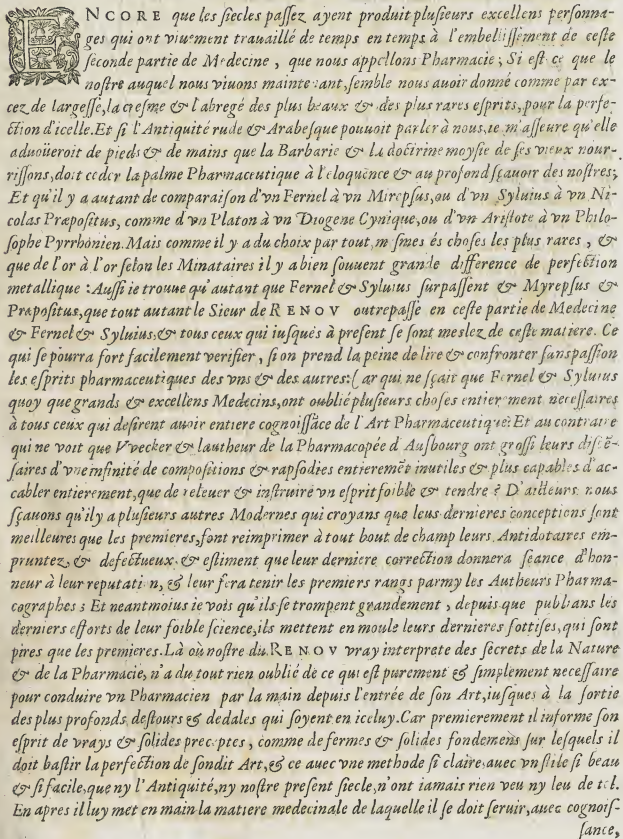 ENCORE que les siecles passez ayent produit plusieurs excellens personna-
ges qui ont viuement trauaillé de temps en temps à l'embellissement de ceste
seconde partie de Medecine, que nous appellons Pharmacie; Si est-ce que le
nostre auquel nous viuons maintenant, semble nous auoir donné comme par ex-
cez de largesse, la cresme & l'abregé des plus beaux & des plus rares esprits, pour la perfe-
ction d'icelle. Et si l'Antiquité rude & Arabesque pouuoit parler à nous, ie m'asseure qu'elle
aduoüeroit de pieds & de mains que la Barbarie & la doctrine moysie de ses vieux nour-
rissons, doit ceder la palme Pharmaceutique à l'eloquence & au profond sçauoir des nostres;
Et qu'il y a autant de comparaison d'vn Fernel à vn Mirepsus, ou d'vn Syluius à vn Ni-
colas Præpositus, comme d'vn Platon à vn Diogene Cynique, ou d'vn Aristote à vn Philo-
sophe Pyrrhónien. Mais comme il y a du choix par tout, mesmes és choses les plus rares, &
que de l'or à l'or selon les Minataires il y a bien souuent grande difference de perfection
metallique: Aussi ie trouue qu'autant que Fernel & Syluius surpassent & Myrepsus &
Præpositus, que tout autant le Sieur de RENOV outrepasse en ceste partie de Medecine
& Fernel & Syluius, & tous ceux qui iusqués à present se sont meslez de ceste matiere. Ce
qui se pourra fort facilement verifier, si on prend la peine de lire & confronter sans passion
les esprits pharmaceutiques des vns & des autres: Car qui ne sçait que Fernel & Syluius
quoy que grands & excellens Medecins, ont oublié plusieurs choses entierement necessaires
à tous ceux qui desirent auoir entiere cognoissāce de l'Art Pharmaceutique: Et au contraire
qui ne voit que Vvecker & lautheur de la Pharmacopée d'Ausbourg ont grossi leurs dispē-
saires d'vne infinité de compositions & rapsodies entieremēt inutiles & plus capables d'ac-
cabler entierement, que de releuer & instruire vn esprit foible & tendre? D'ailleurs nous
sçauons qu'il y a plusieurs autres Modernes qui croyans que leus dernieres conceptions sont
meilleures que les premieres, font reimprimer à tout bout de champ leurs Antidotaires em-
pruntez, & defectueux & estiment que leur derniere correction donnera seance d'hon-
neur à leur reputation, & leur fera tenir les premiers rangs parmy les Autheurs Pharma-
cographes; Et neantmoius ie vois qu'ils se trompent grandement, depuis que publians les
derniers efforts de leur foible science, ils mettent en moule leurs dernieres sottises, qui sont
pires que les premieres. Là où nostre du RENOV vray interprete des secrets de la Nature
& de la Pharmacie, n'a du tout rien oublié de ce qui est purement & simplement necessaire
pour conduire vn Pharmacien par la main depuis l'entrée de son Art, iusques à la sortie
des plus profonds destours & dedales qui soyent en iceluy. Car premierement il informe son
esprit de vrays & solides preceptes, comme de fermes & solides fondemens sur lesquels il
doit bastir la perfection de sondit Art, & ce auec vne methode si claire, auec vn stile si beau
& si facile, que ny l'Antiquité, ny nostre present siecle, n'ont iamais rien veu ny leu de tel.
En apres il luy met en main la matiere medecinale de laquelle il se doit seruir, auec cognois-
sance,